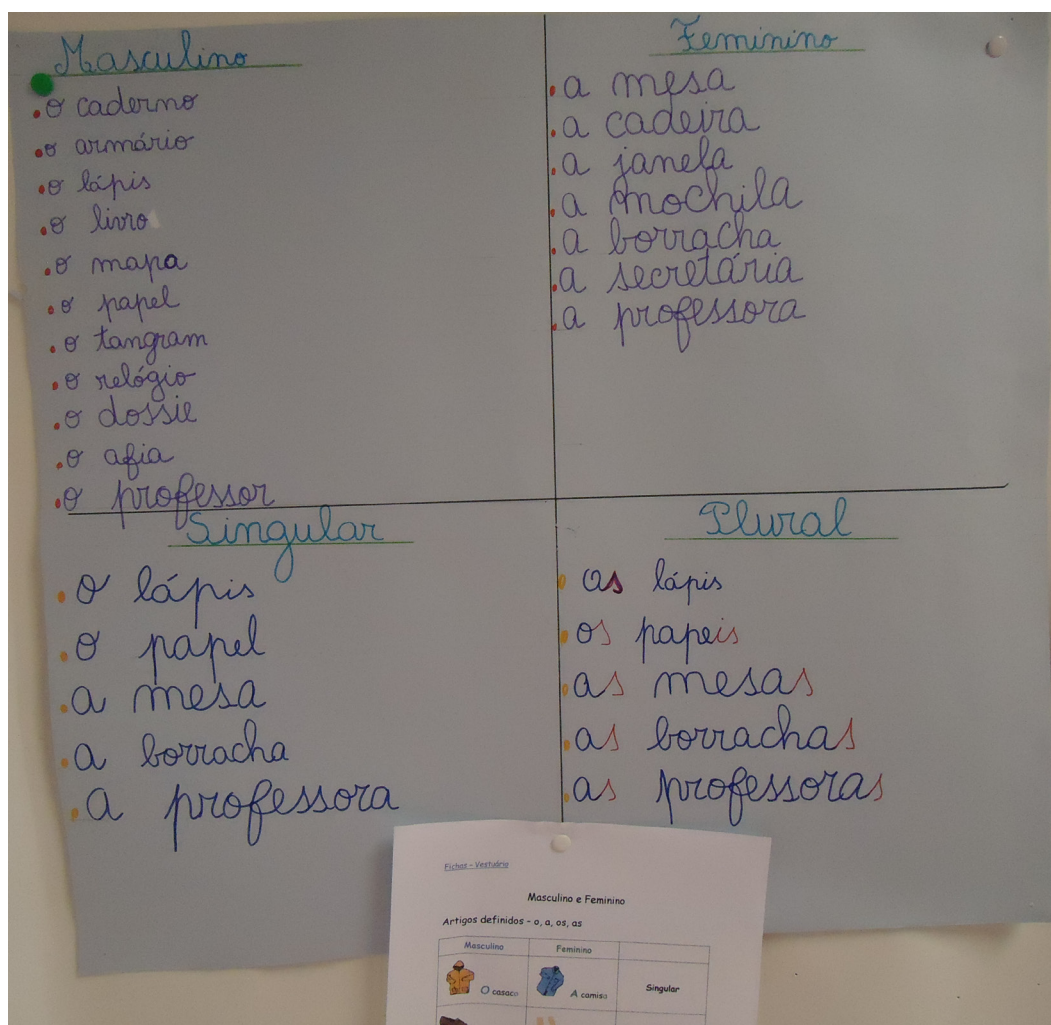 Masculino
o caderno
o armário
o lápis
o livro
o mapa
o papel
o tangram
o relógio
o dossie
o afia
o professor
Feminino
a mesa
a cadeira
a janela
a mochila
a borracha
a secretária
a professora
Singular
o lápis
o papel
a mesa
a borracha
a professora
Plural
os lápis
os papeis
as mesas
as borrachas
as professoras
Fichas - Vestuário
Masculino e Feminino
Artigos definidos - o, a, os, as
Masculino
Feminino
O casaco
A camisa
Singular